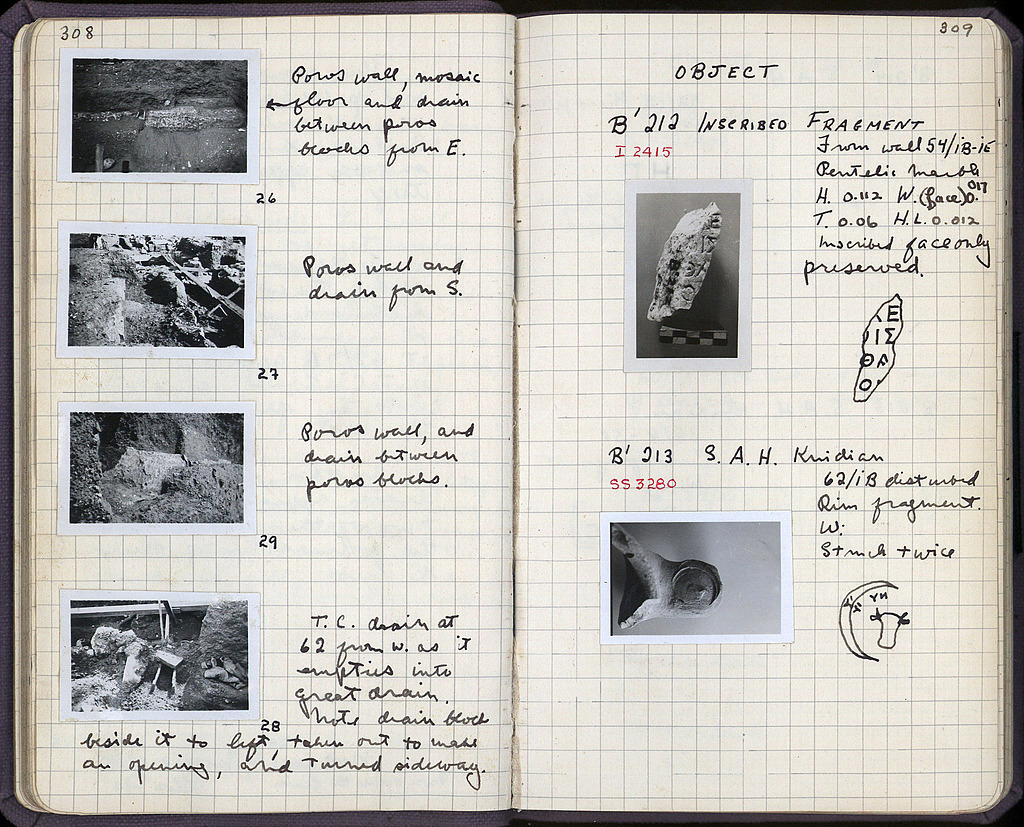 308
Poros wall, mosaic
floor and drain
between poros
blocks from E.
26
Poros wall and
drain from S.
27
Poros wall, and
drain between
poros blocks.
29
T.C. drain at
62 from W. as it
empties into
great drain.
Note drain block
28
beside it to left, taken out to make
an opening, and turned sideway.
309
OBJECT
B' 212 INSCRIBED FRAGMENT
I 2415
From wall 54/ΙΒ-ΙΕ
Pentelic marble
H. 0.112 W. (face) 0.017
T. 0.06 H.L. 0.012
Inscribed face only
preserved.
Ε
ΙΙΣ
Ο
B' 213 S.A.H. Knidian
SS 3280
62/ΙΒ disturbed
Rim fragment.
W:
Struck twice